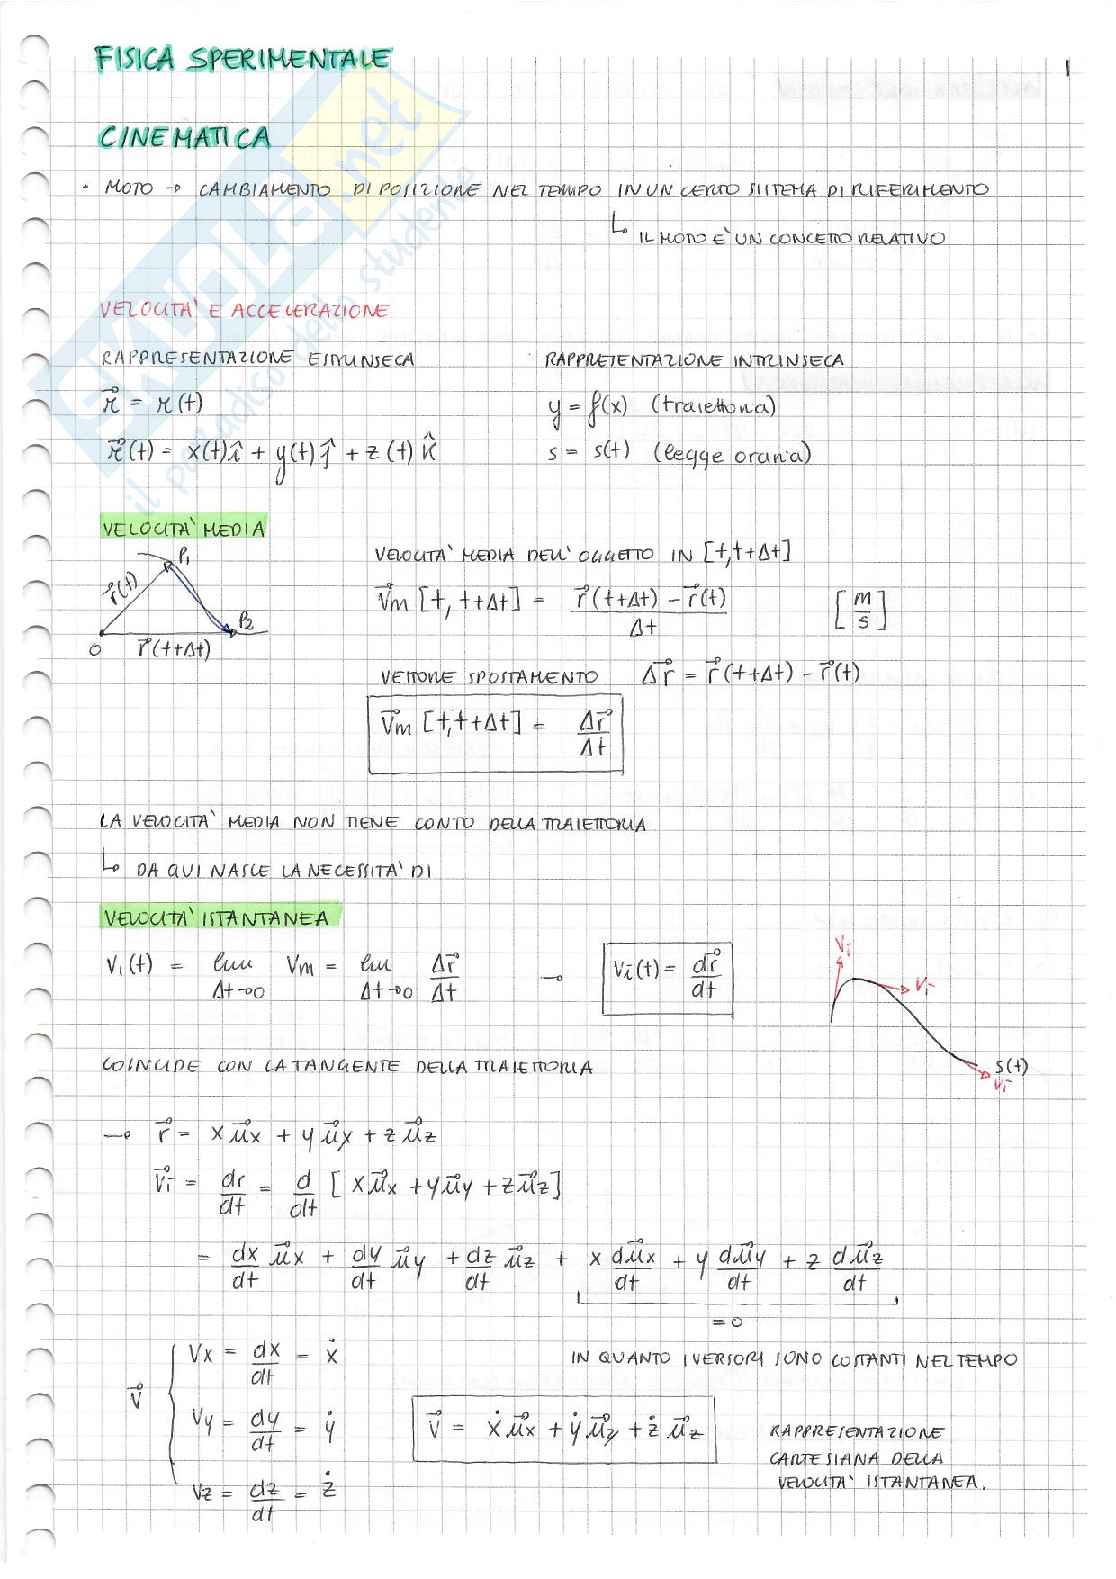 FISICA SPERIMENTALE
1
CINEMATICA
· MOTO → CAMBIAMENTO DI POSIZIONE NEL TEMPO IN UN CERTO SISTEMA DI RIFERIMENTO
↳ IL MOTO E' UN CONCETTO RELATIVO
VELOCITA' E ACCELERAZIONE
RAPPRESENTAZIONE ESTRINSECA
RAPPRESENTAZIONE INTRINSECA
r⃗ = r(t)
y = f(x) (traiettoria)
r⃗(t) = x(t)î + y(t)ĵ + z(t)k̂
s = s(t) (legge oraria)
VELOCITA' MEDIA
P1
r⃗(t)
P2
O
r⃗(t+Δt)
VELOCITA' MEDIA DELL' OGGETTO IN [t,t+Δt]
v⃗m [t, t+Δt] = r⃗(t+Δt) - r⃗(t) / Δt [m/s]
VETTORE SPOSTAMENTO Δr⃗ = r⃗(t+Δt) - r⃗(t)
v⃗m [t,t+Δt] = Δr⃗/Δt
LA VELOCITA' MEDIA NON TIENE CONTO DELLA TRAIETTORIA
↳ DA QUI NASCE LA NECESSITA' DI
VELOCITA' ISTANTANEA
Vi(t) = lim Δt→0 Vm = lim Δt→0 Δr⃗/Δt → Vi(t) = dr⃗/dt
Vi
Vi
s(t)
Vi
COINCIDE CON LA TANGENTE DELLA TRAIETTORIA
→ r⃗ = x u⃗x + y u⃗y + z u⃗z
v⃗i = dr/dt = d/dt [x u⃗x + y u⃗y + z u⃗z]
= dx/dt u⃗x + dy/dt u⃗y + dz/dt u⃗z + x du⃗x/dt + y du⃗y/dt + z du⃗z/dt
= 0
IN QUANTO I VERSORI SONO COSTANTI NEL TEMPO
v⃗
Vx = dx/dt = ẋ
Vy = dy/dt = ẏ
Vz = dz/dt = ż
v⃗ = ẋ u⃗x + ẏ u⃗y + ż u⃗z
RAPPRESENTAZIONE
CARTESIANA DELLA
VELOCITA' ISTANTANEA.
SKUOLA.net
il paradiso dello studente